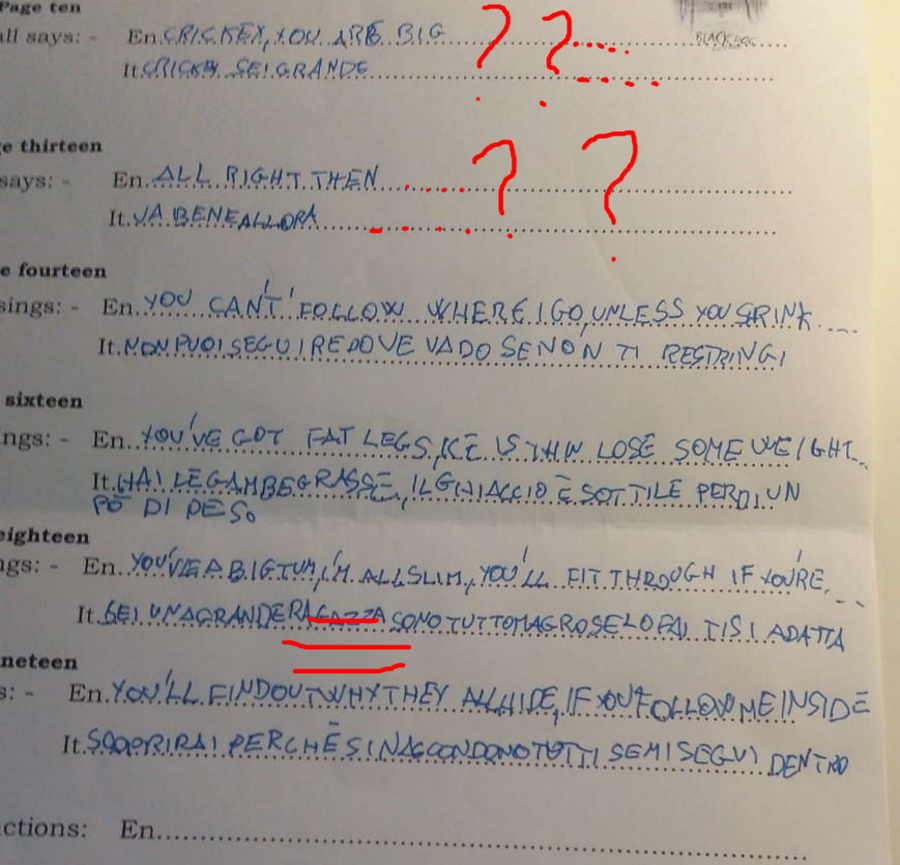 Page ten
all says: - En. CRICKEY, YOU ARE BIG ? ?
BLACK DOG
It. CRICKEY SEI GRANDE
ge thirteen
says: - En. ALL RIGHT THEN ? ?
It. VA BENE ALLORA
e fourteen
sings: - En. YOU CAN'T FOLLOW WHERE I GO, UNLESS YOU SRINK
It. NON PUOI SEGUIRE DOVE VADO SE NON TI RESTRINGI
sixteen
ngs: - En. YOU'VE GOT FAT LEGS, ICE IS THIN LOSE SOME WEIGHT
It. HAI LE GAMBE GRASSE, IL GHIACCIO È SOTTILE PERDI UN
PÒ DI PESO
eighteen
ngs: - En. YOU'VE A BIG TUM, I'M ALL SLIM, YOU'LL FIT THROUGH IF YOU'RE
It. SEI UNA GRANDE RAGAZZA SONO TUTTO MAGRO SE LO FAI TI SI ADATTA
neteen
s: - En. YOU'LL FIND OUT WHY THEY ALL HIDE, IF YOU FOLLOW ME INSIDE
It. SCOPRIRAI PERCHÈ SI NASCONDONO TUTTI SE MI SEGUI DENTRO
ctions: En.